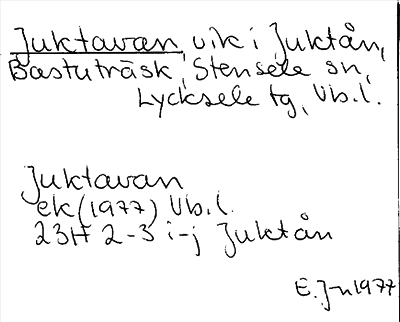 Juktavan, vik i Juktån,
Bastuträsk, Stensele sn,
Lycksele tg, Vb.l.
Juktavan
ek (1977) Vb.l.
23H 2-3 i-j Juktån
E. J-n 1977